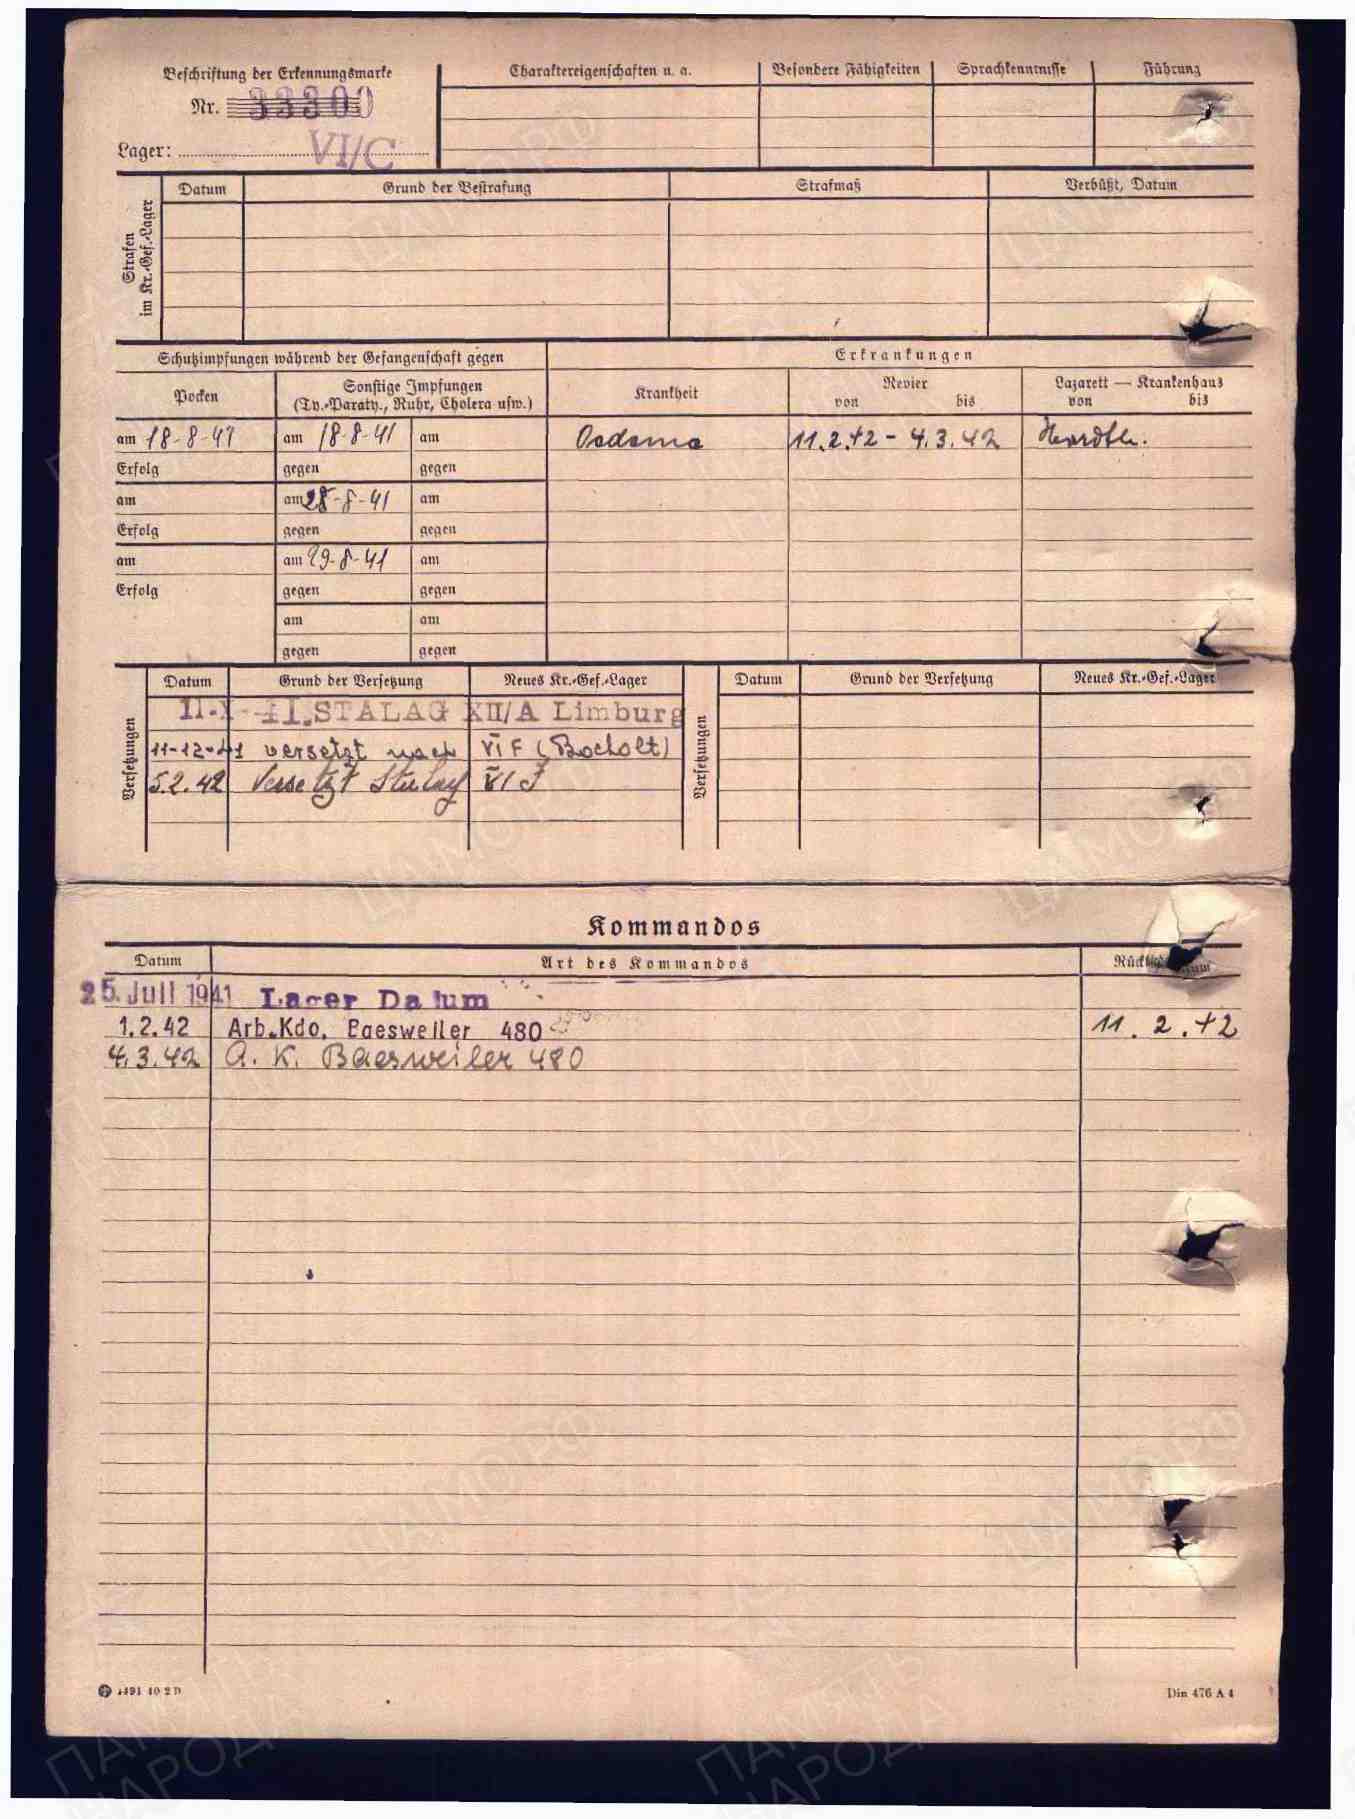 Beschriftung der Erkennungsmarke
Nr. 33300
Lager: VI/C
Charaktereigenschaften u. a.
Besondere Fähigkeiten
Sprachkenntnisse
Führung
Strafen
im Kr.-Gef.-Lager
Datum
Grund der Bestrafung
Strafmaß
Verbüßt, Datum
Schutzimpfungen während der Gefangenschaft gegen
Erkrankungen
Pocken
Sonstige Impfungen
(Ty.-Paraty., Ruhr, Cholera usw.)
Krankheit
Revier
von bis
Lazarett — Krankenhaus
von bis
am 18-8-41 am 18-8-41 am
Oedema 11.2.42 - 4.3.42
Erfolg gegen gegen
am am 28-8-41 am
Erfolg gegen gegen
am am 29-8-41 am
Erfolg gegen gegen
am am
gegen gegen
Versetzungen
Datum Grund der Versetzung Neues Kr.-Gef.-Lager
11.X.41. STALAG XII/A Limburg
11-12-41 versetzt nach VI F (Bocholt)
5.2.42 Versetzt Stalag VI J
Versetzungen
Datum Grund der Versetzung Neues Kr.-Gef.-Lager
Kommandos
Datum Art des Kommandos
25. Juli 1941 Lager Datum
1.2.42 Arb.Kdo. Baesweiler 480 11.2.42
4.3.42 A. K. Baesweiler 480
Din 476 A 4
ПАМЯТЬ
НАРОДА
ЦАМО РФ